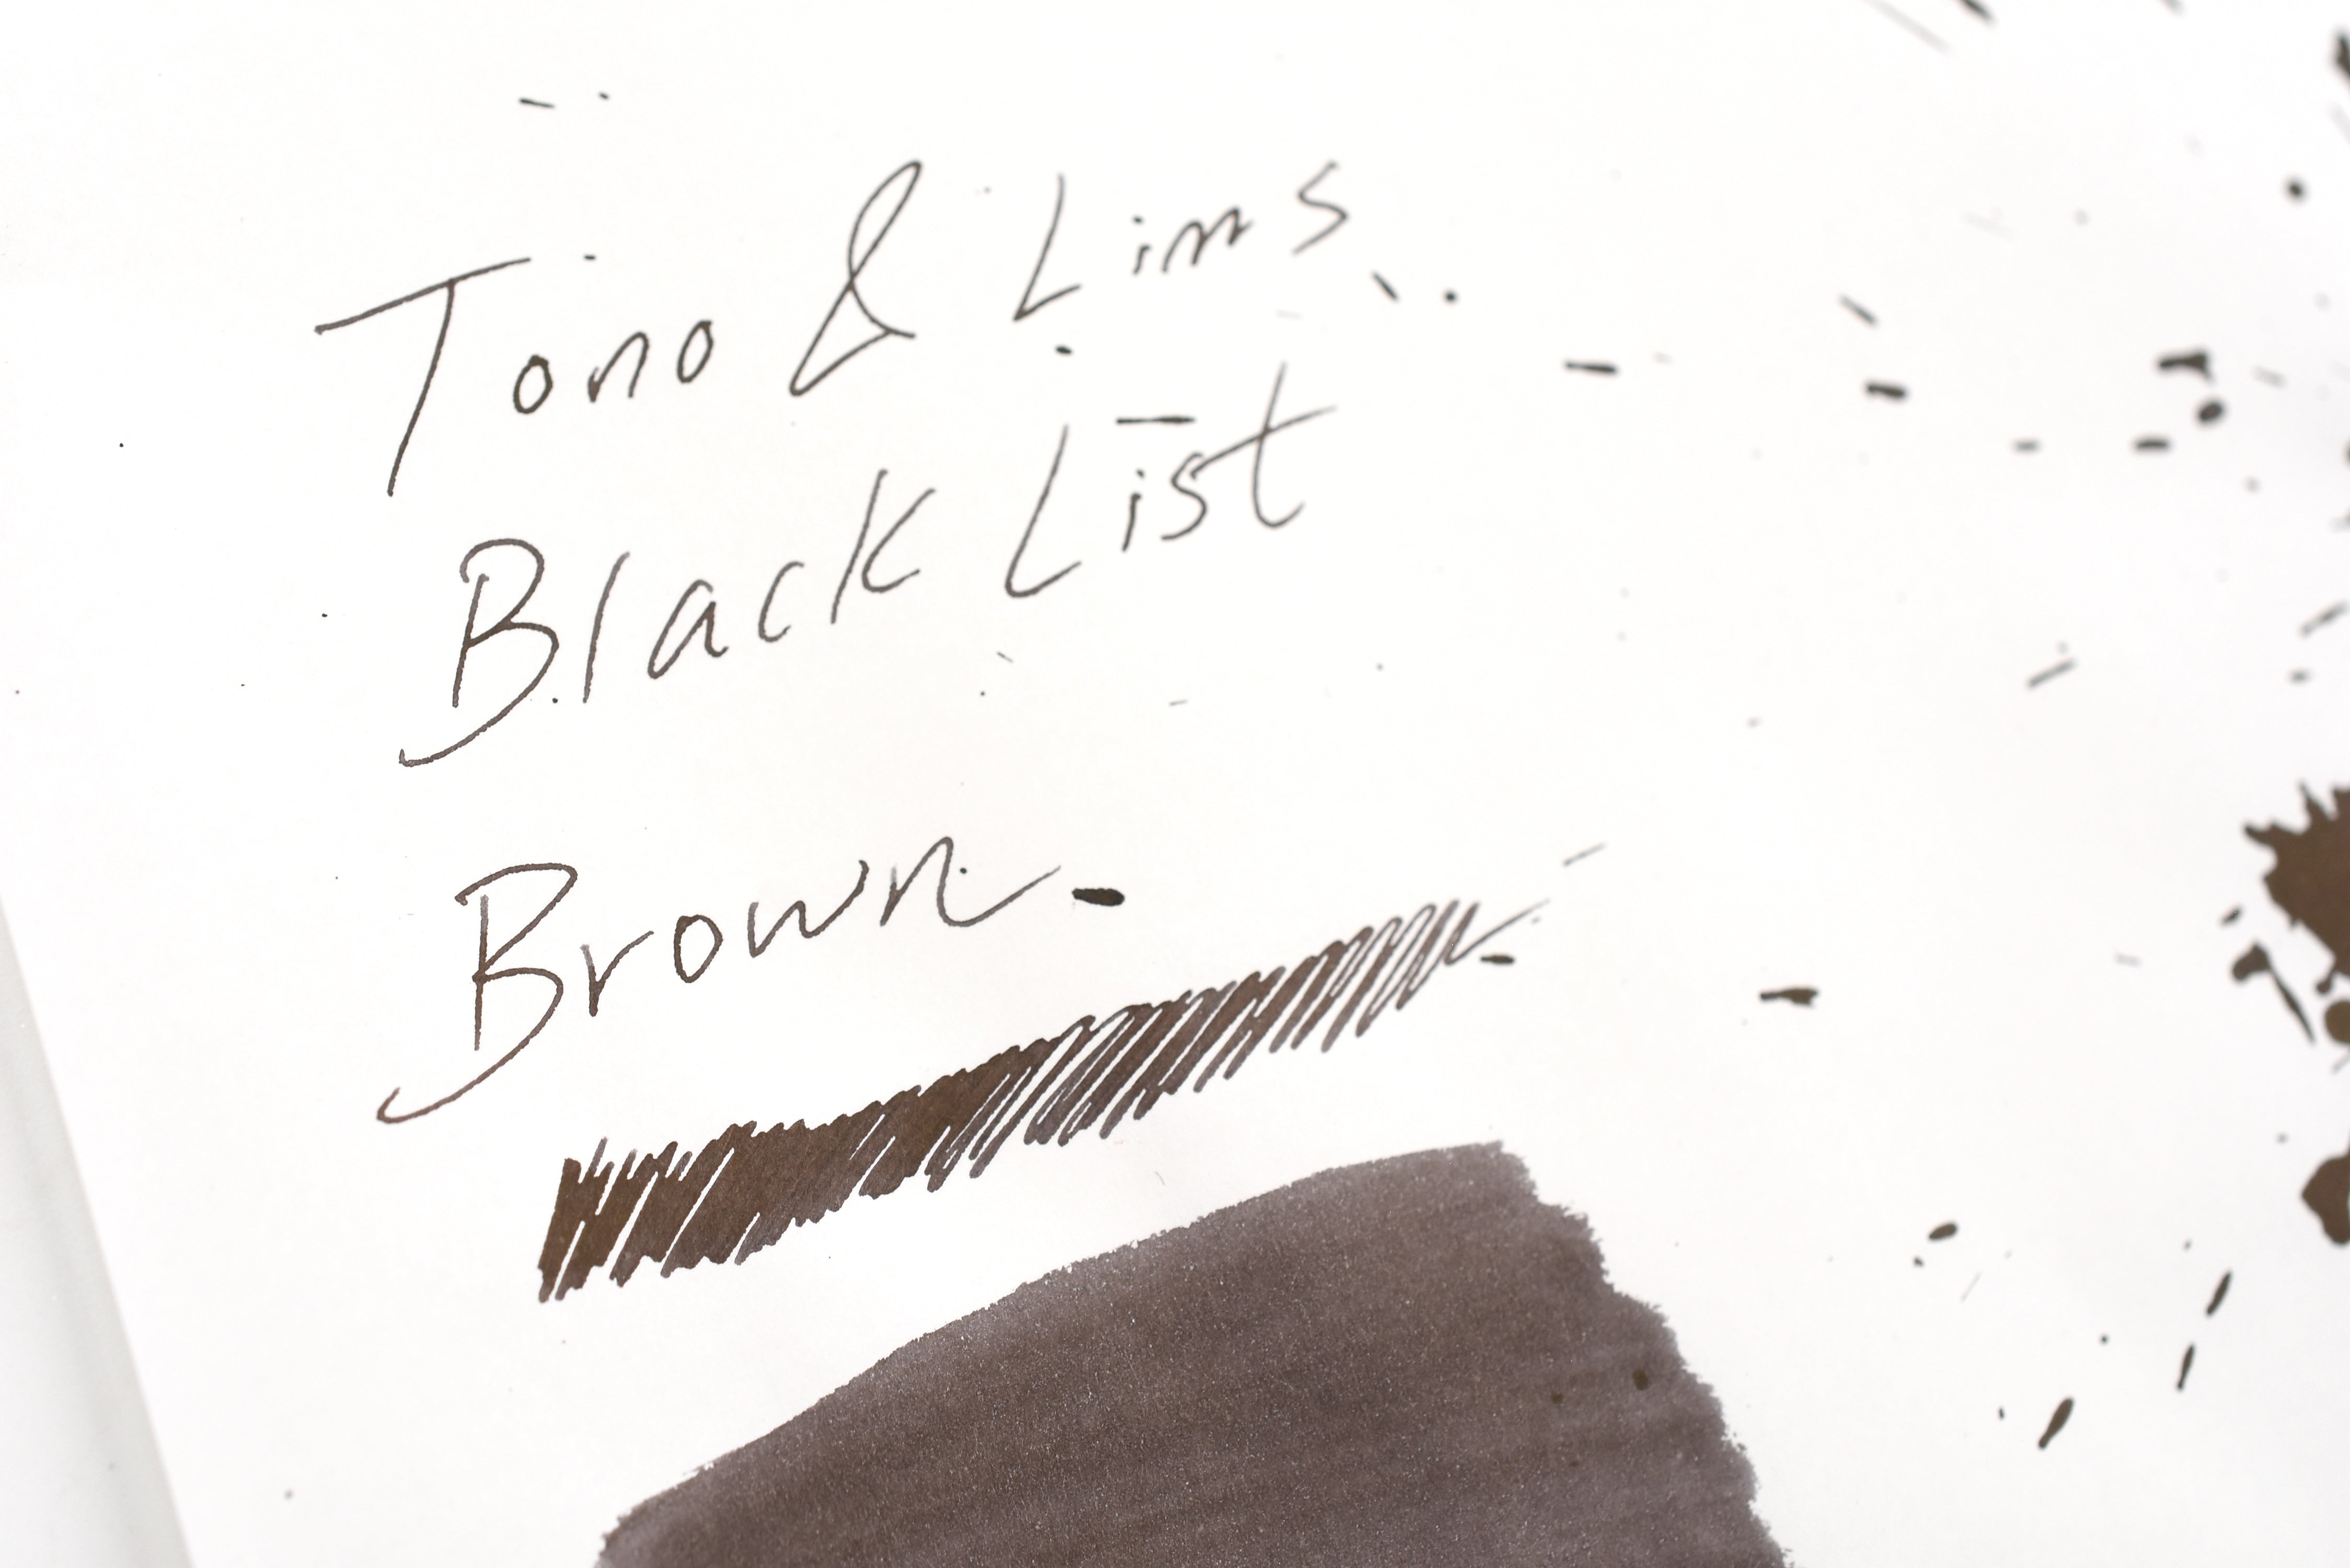 Tono & Lims
Black List
Brown